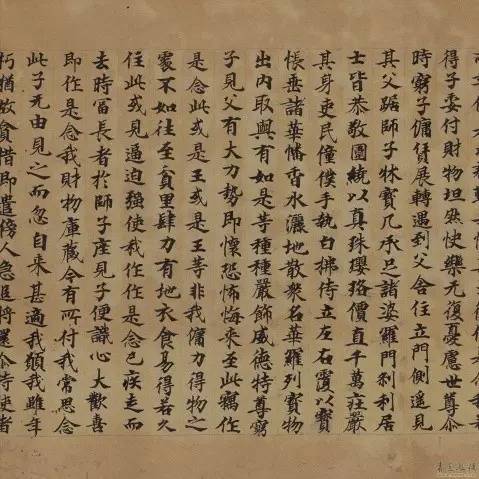 得子委付財物坦然快樂无復憂慮世尊尒
時窮子傭賃展轉遇到父舍住立門側遥見
其父踞師子牀寶几承足諸婆羅門刹利居
士皆恭敬圍繞以真珠瓔珞價直千萬莊嚴
其身吏民僮僕手執白拂侍立左右覆以寶
帳垂諸華幡香水灑地散衆名華羅列寶物
出内取與有如是等種種嚴飾威德特尊窮
子見父有大力勢即懷恐怖悔来至此竊作
是念此或是王或是王等非我傭力得物之
處不如往至貧里肆力有地衣食易得若久
住此或見逼迫强使我作作是念已疾走而
去時富長者於師子座見子便識心大歡喜
即作是念我財物庫藏今有所付我常思念
此子无由見之而忽自来甚適我願我雖年
朽猶故貪惜即遣傍人急追將還尒時使者